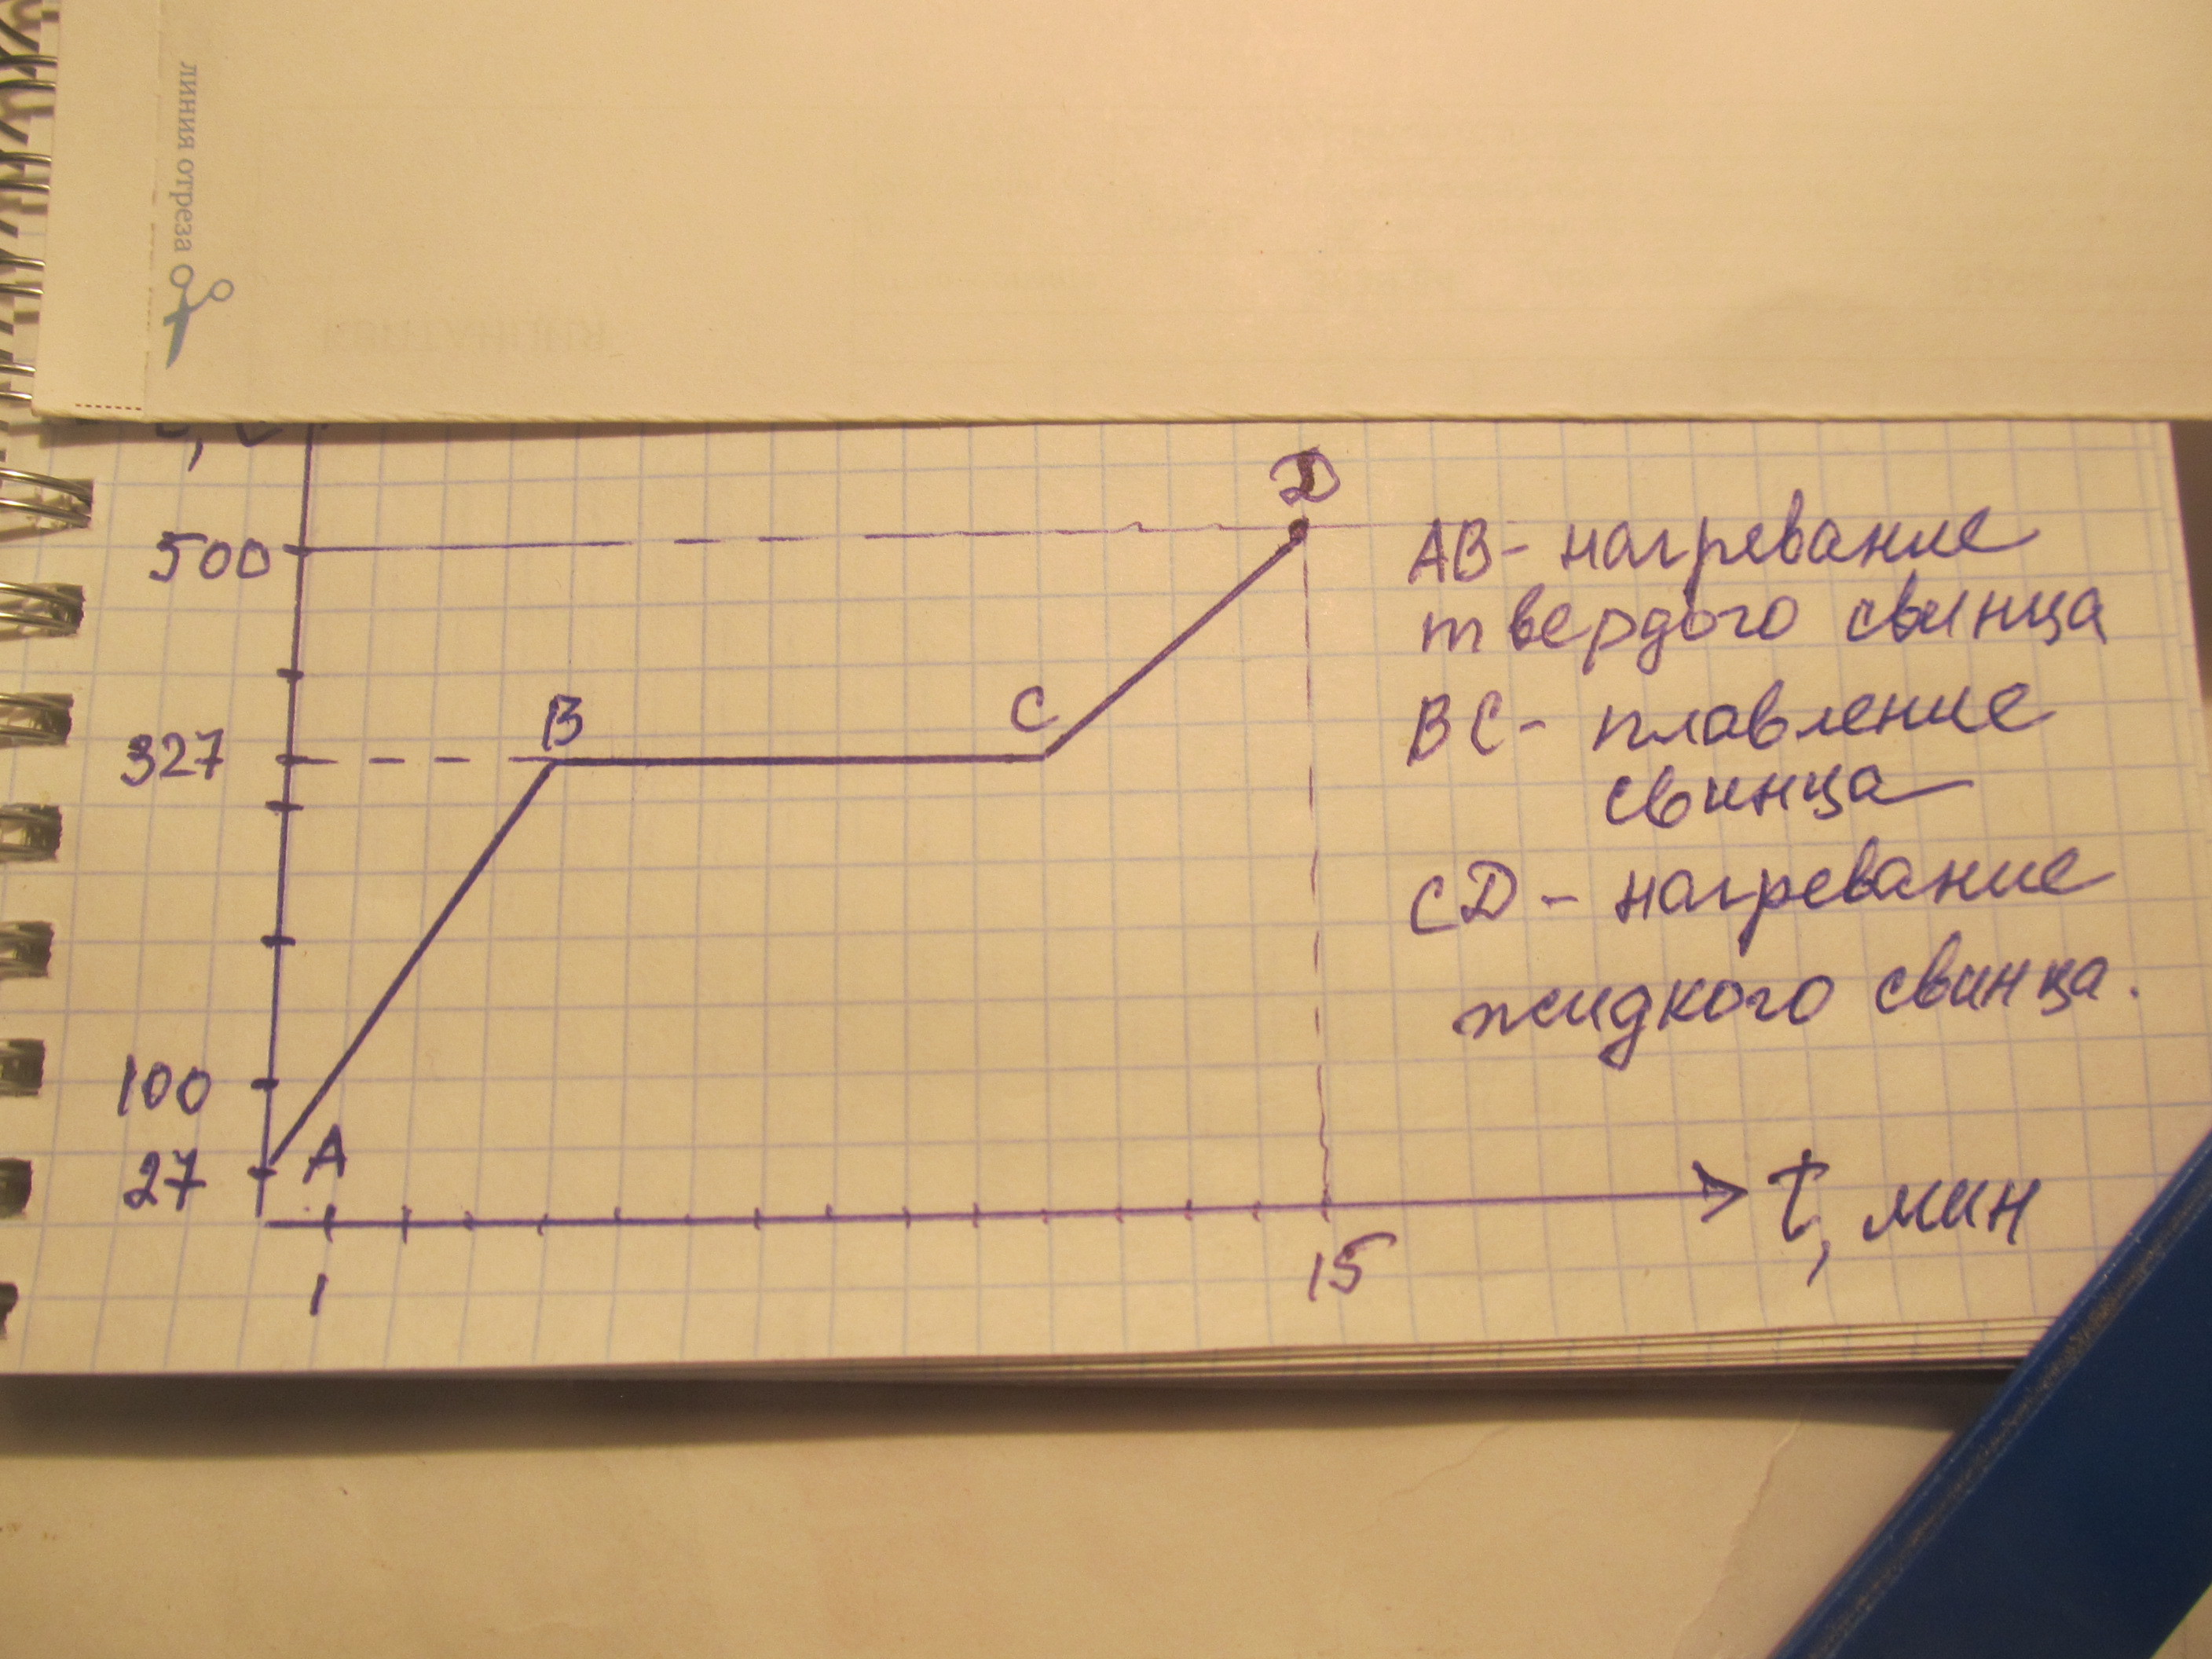 линия отреза
500
D
327
B
C
100
27
A
1
15
t, мин
AB - нагревание
твердого свинца
BC - плавление
свинца
CD - нагревание
жидкого свинца.